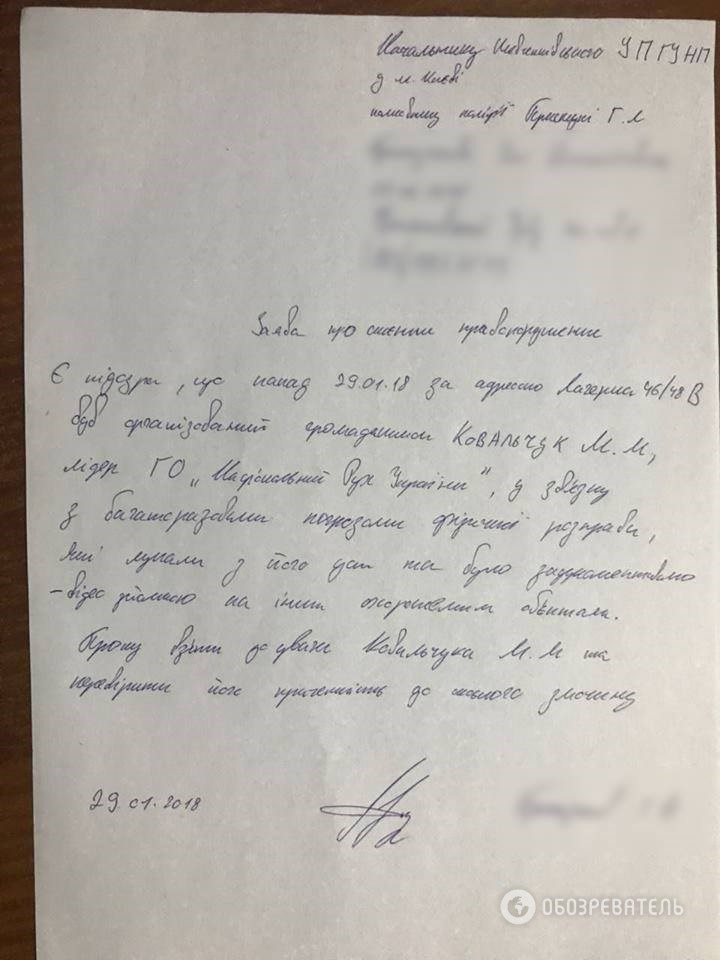 Начальнику Шевченківського УП ГУНП
у м. Києві
полковнику поліції Г. Л
Заява про скоєння правопорушення
Є підозри, що напад 29.01.18 за адресою Багерна 46/48 В
був організований громадянином КОВАЛЬЧУК М. М,
лідер ГО „Національний Рух України", у звязку
з багаторазовими погрозами фізичної розправи,
які лунали з його уст та було задокументовано
– відео зйомкою на інших охороняємих обьектах.
Прошу взяти до уваги Ковальчука М. М та
перевірити його причетність до скоєного злочину
29.01.2018
ОБОЗРЕВАТЕЛЬ